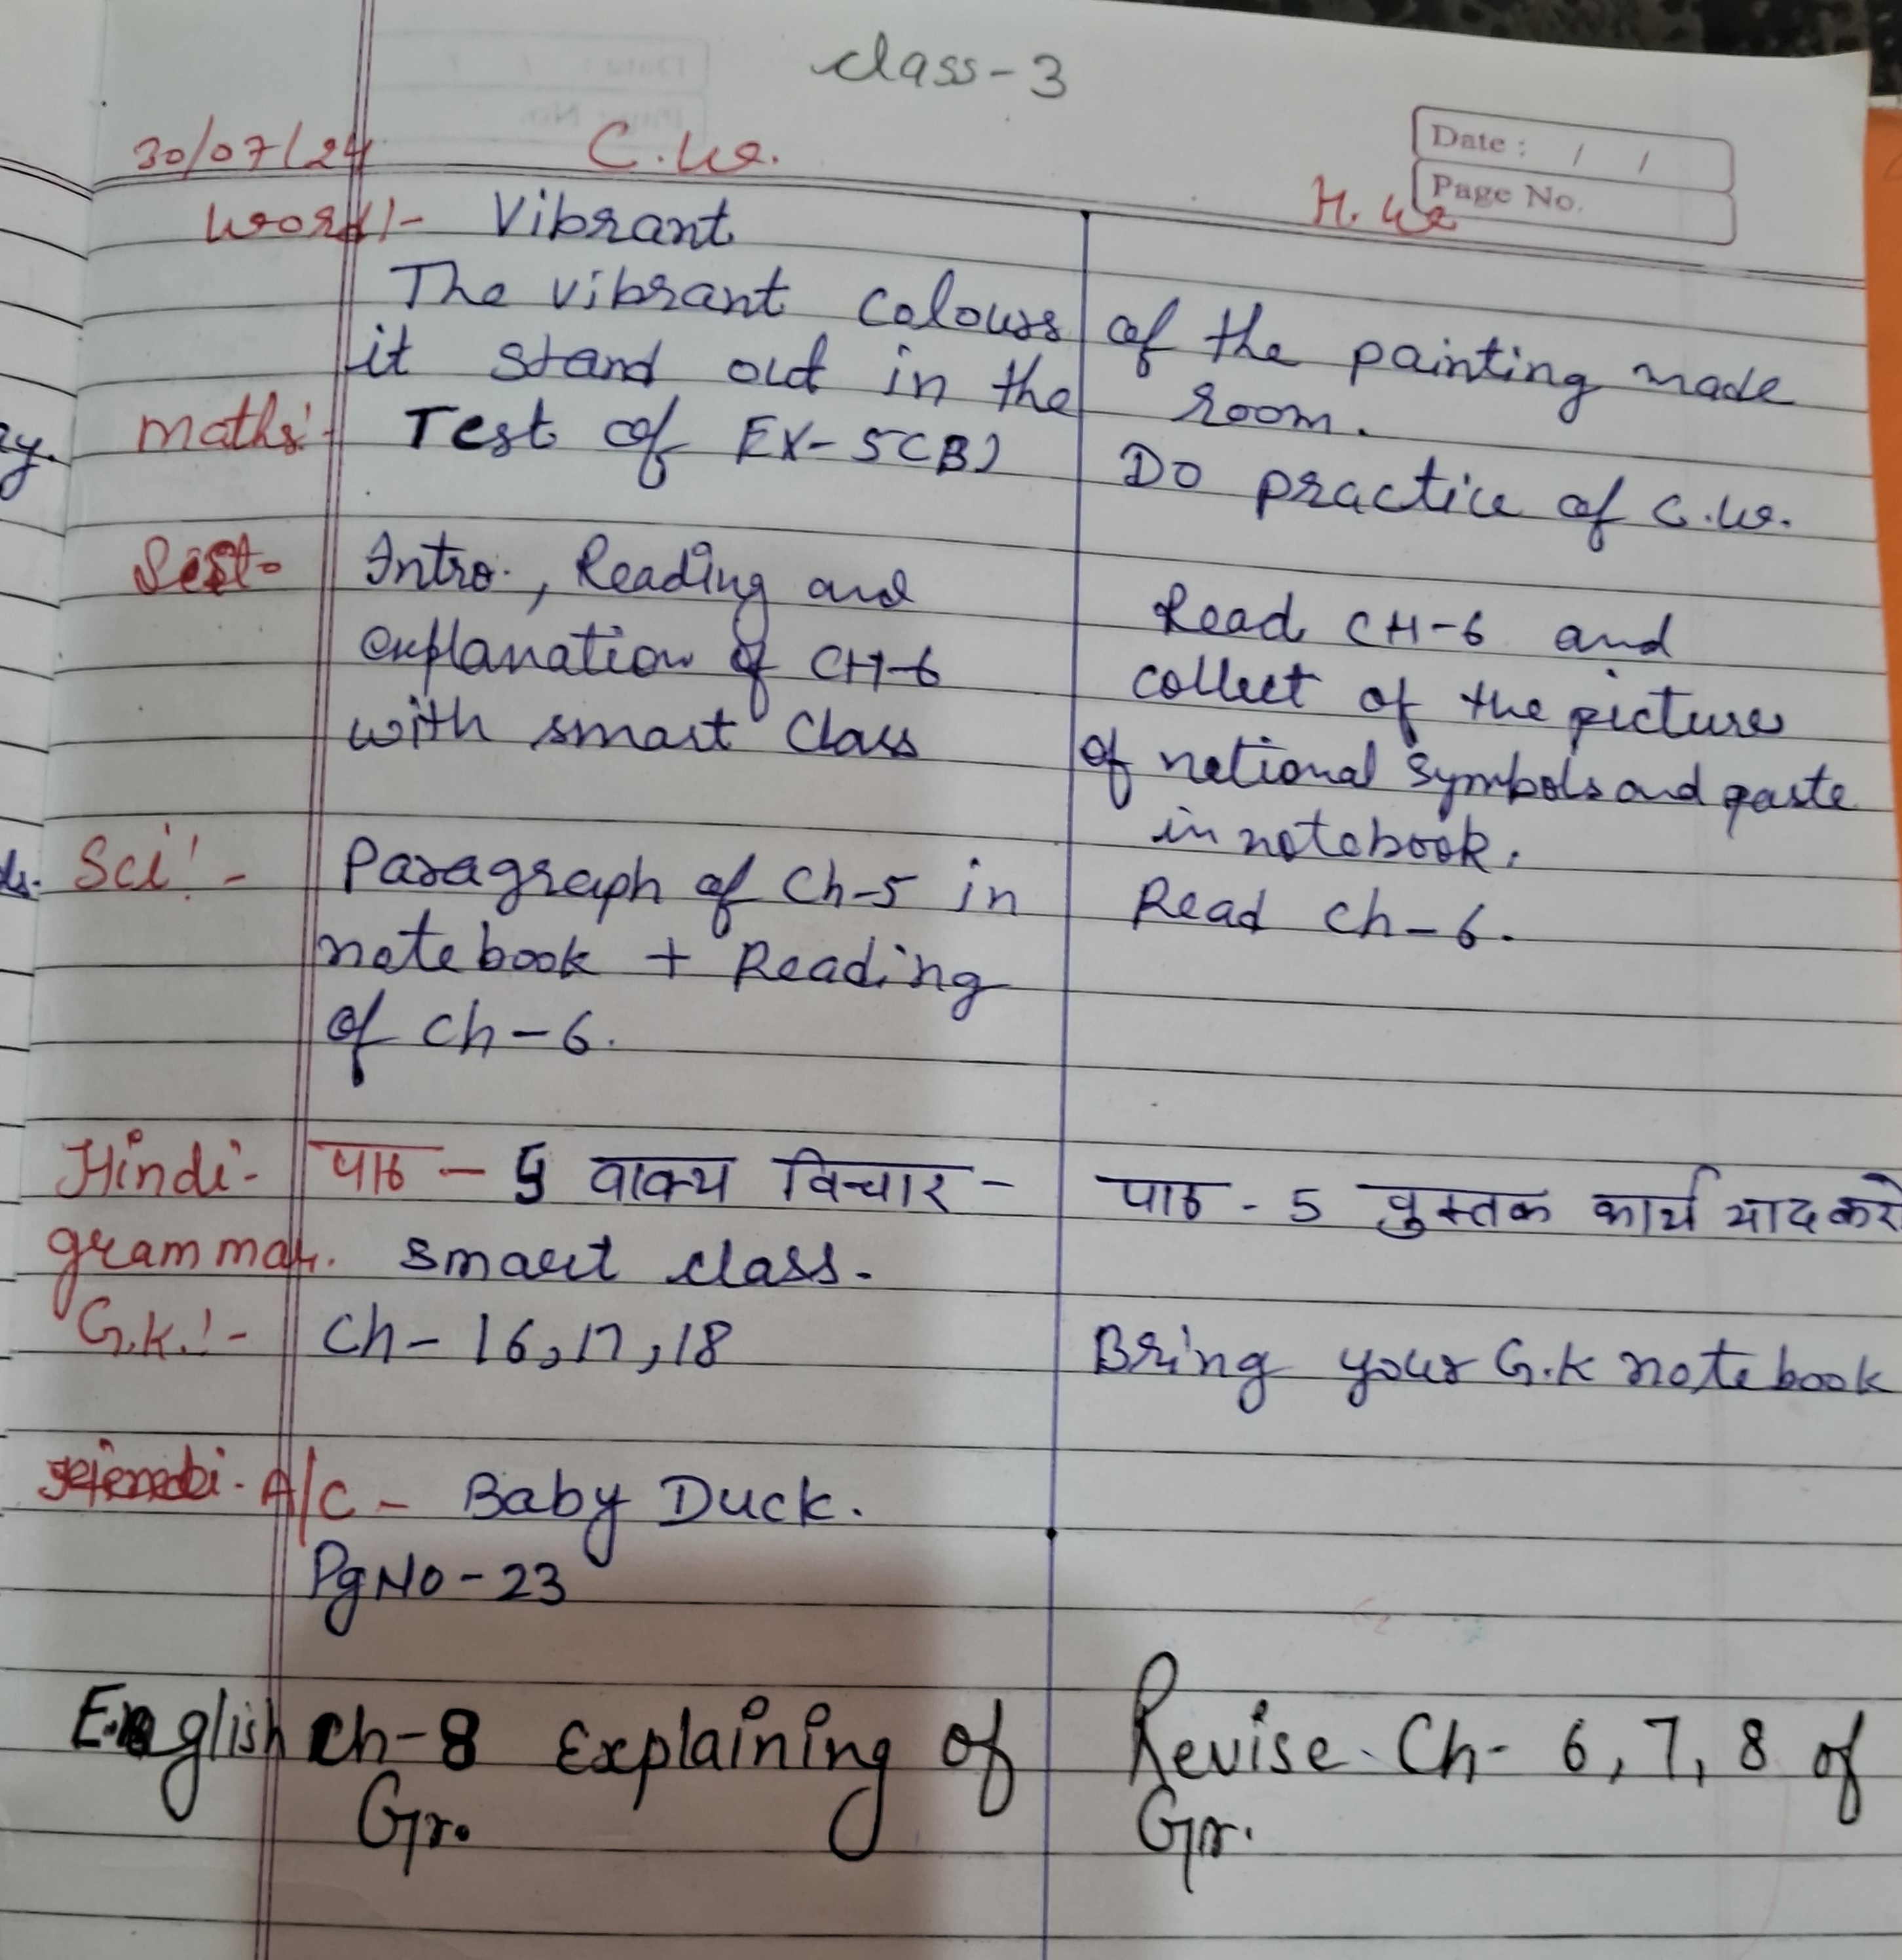 class-3
30/07/24 C.W.
Date: / /
Page No.
H.W
Word!- Vibrant
The vibrant colours of the painting made
it stand out in the room.
Maths:- Test of EX-5(B) Do practice of C.W.
S.st- Intro., Reading and
explanation of CH-6
with smart Class
Read CH-6 and
collect of the picture
of national symbols and paste
in notebook.
Sci!- Paragraph of Ch-5 in
notebook + Reading
of Ch-6.
Read Ch-6.
Hindi- पाठ - 5 वाक्य विचार - पाठ - 5 पुस्तक कार्य याद करो
grammar. smart class.
G.K.!- Ch-16,17,18 Bring your G.K notebook
A/C- Baby Duck.
Pg No-23
English Ch-8 Explaining of
Gr.
Revise Ch- 6, 7, 8 of
Gr.